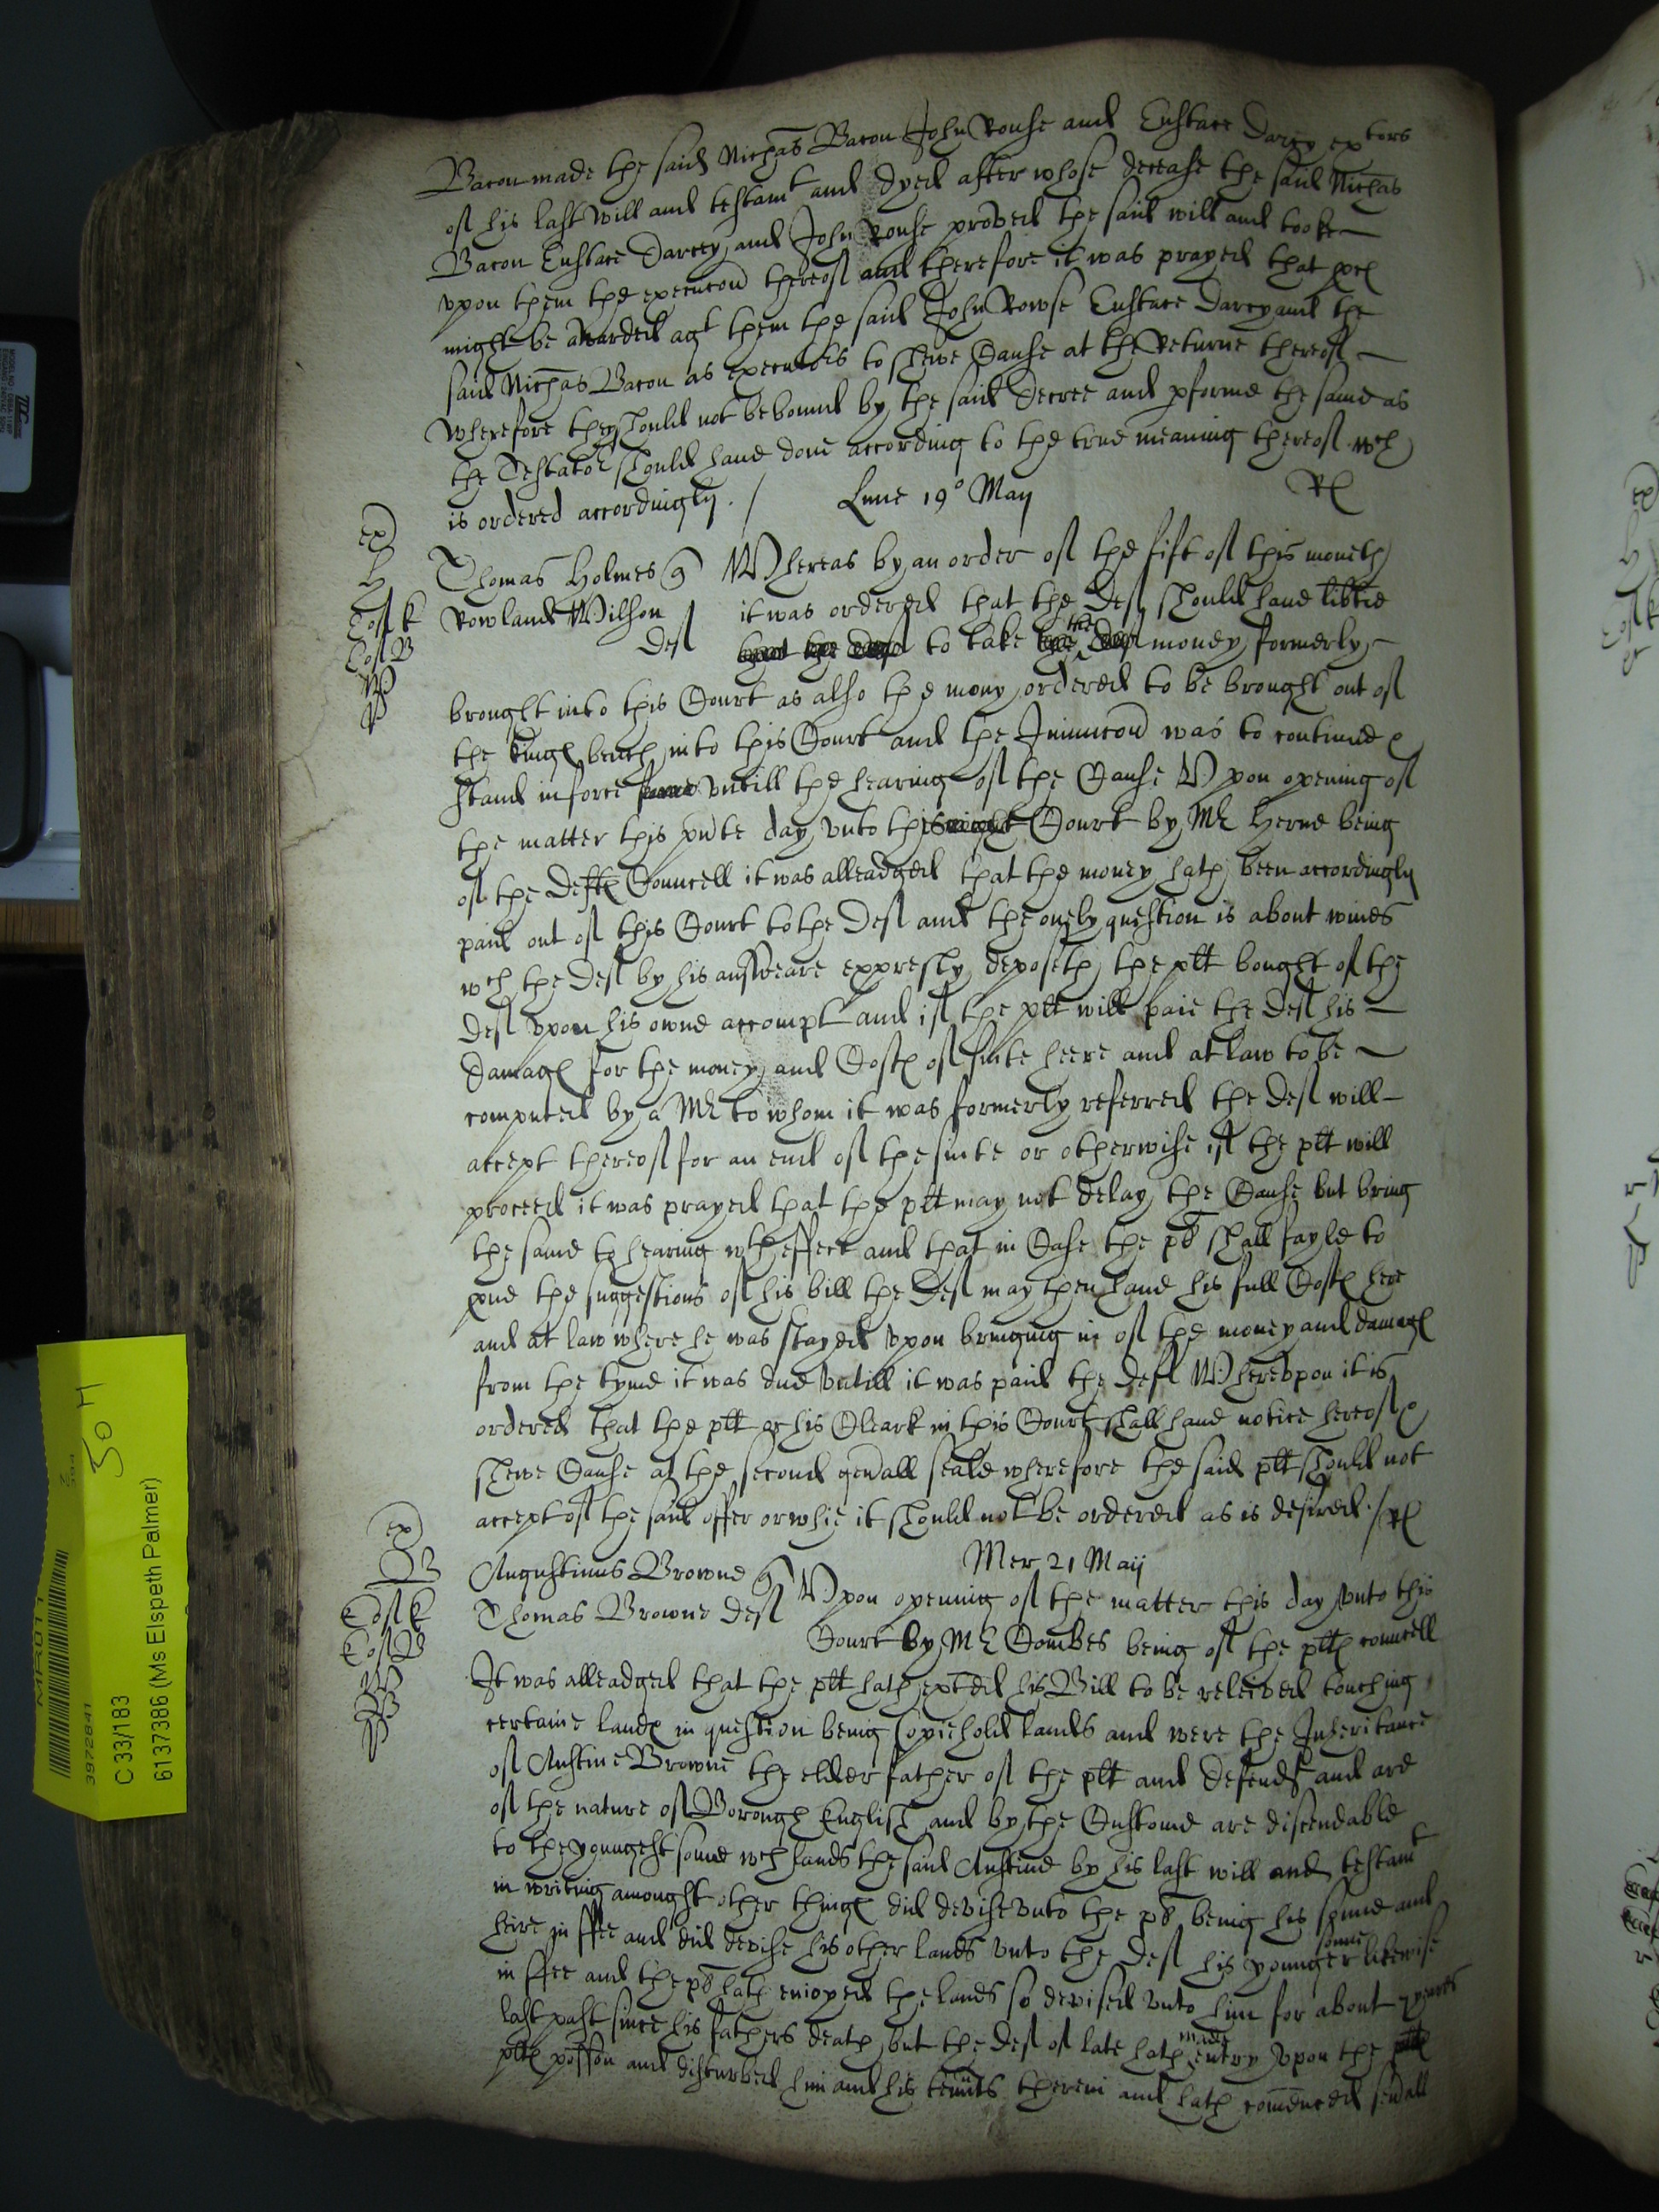 Bacon made the said Nichãs Bacon John Rouse and Eustace Darcy extors
of his last Will and testamt and dyed after whose decease the said Nichãs
Bacon Eustace Darcey and John Rouse proved the said will and tooke
vpon them the execucon thereof and therefore it was prayed that
might be awarded agt them the said John Rowse Eustace Darcy and the
said Nichãs Bacon as executors to shewe Cause at the Returne thereof
wherefore they should not be bound by the said Decree and pforme the same as
the Testator should haue done according to the true meaning thereof wch
is ordered accordingly. / Lune 19° Maij
ex
H
Thomas Holmes Whereas by an order of the fift of this moneth
Rowland Wilson it was ordered that the Def should haue libtie
def to take the money formerly
brought into this Court as also the mony ordered to be brought out of
the kings bench into this Court and the Iniunccon was to continue
stand in force vntill the hearing of the Cause Vpon opening of
the matter this pnte day vnto this Court by Mr Herne being
of the Defts Councell it was alleadged that the money hath been accordingly
paid out of this Court to the Def and the onely question is about wines
wch the Def by his answeare expresly deposeth the plt bought of the
Def vpon his owne accompt and if the plt will paie the Def his
damages for the money and Costs of suite heere and at law to be
computed by a Mr to whom it was formerly referred the Def will
accept thereof for an end of the suite or otherwise if the plt will
proceed it was prayed that the plt may not delay the Cause but bring
the same to hearing wth effect and that in Case the pt shall fayle to
proue the suggestions of his bill the Def may then haue his full Costs here
and at law where he was stayed vpon bringing in of the money and damages
from the tyme it was due vntill it was paid the Def Wherevpon it is
ordered that the plt or his Cleark in this Court shall haue notice hereof
shewe Cause at the second genall seale wherefore the said plt should not
accept of the said offer or whie it should not be ordered as is desired /
ex
Mer 21 Maij
Augustinus Browne Vpon opening of the matter this day vnto this
Thomas Browne Def Court by Mr Combes being of the plts councell
It was alleadged that the plt hath exhted his Bill to be releived touching
certaine lands in question being Copiehold lands and were the Inheritance
of Austine Browne the elder father of the plt and defendt and are
of the nature of Borough English and by the Custome are discendable
to the youngest sonne wch lands the said Austine by his last will and testamt
in writing amongst other things did devise vnto the pt being his sonne and
heire in ffee and did devise his other lands vnto the Def his younger sonne likewise
in ffee and the pt hath enioyed the lands so devised vnto him for about 7 yeares
last past since his fathers death but the def of late hath made entry vpon the
plts possion and disturbed him and his tennts therein and hath comenced seuall
MR011
30 H
3972841
C 33/183
6137386 (Ms Elspeth Palmer)